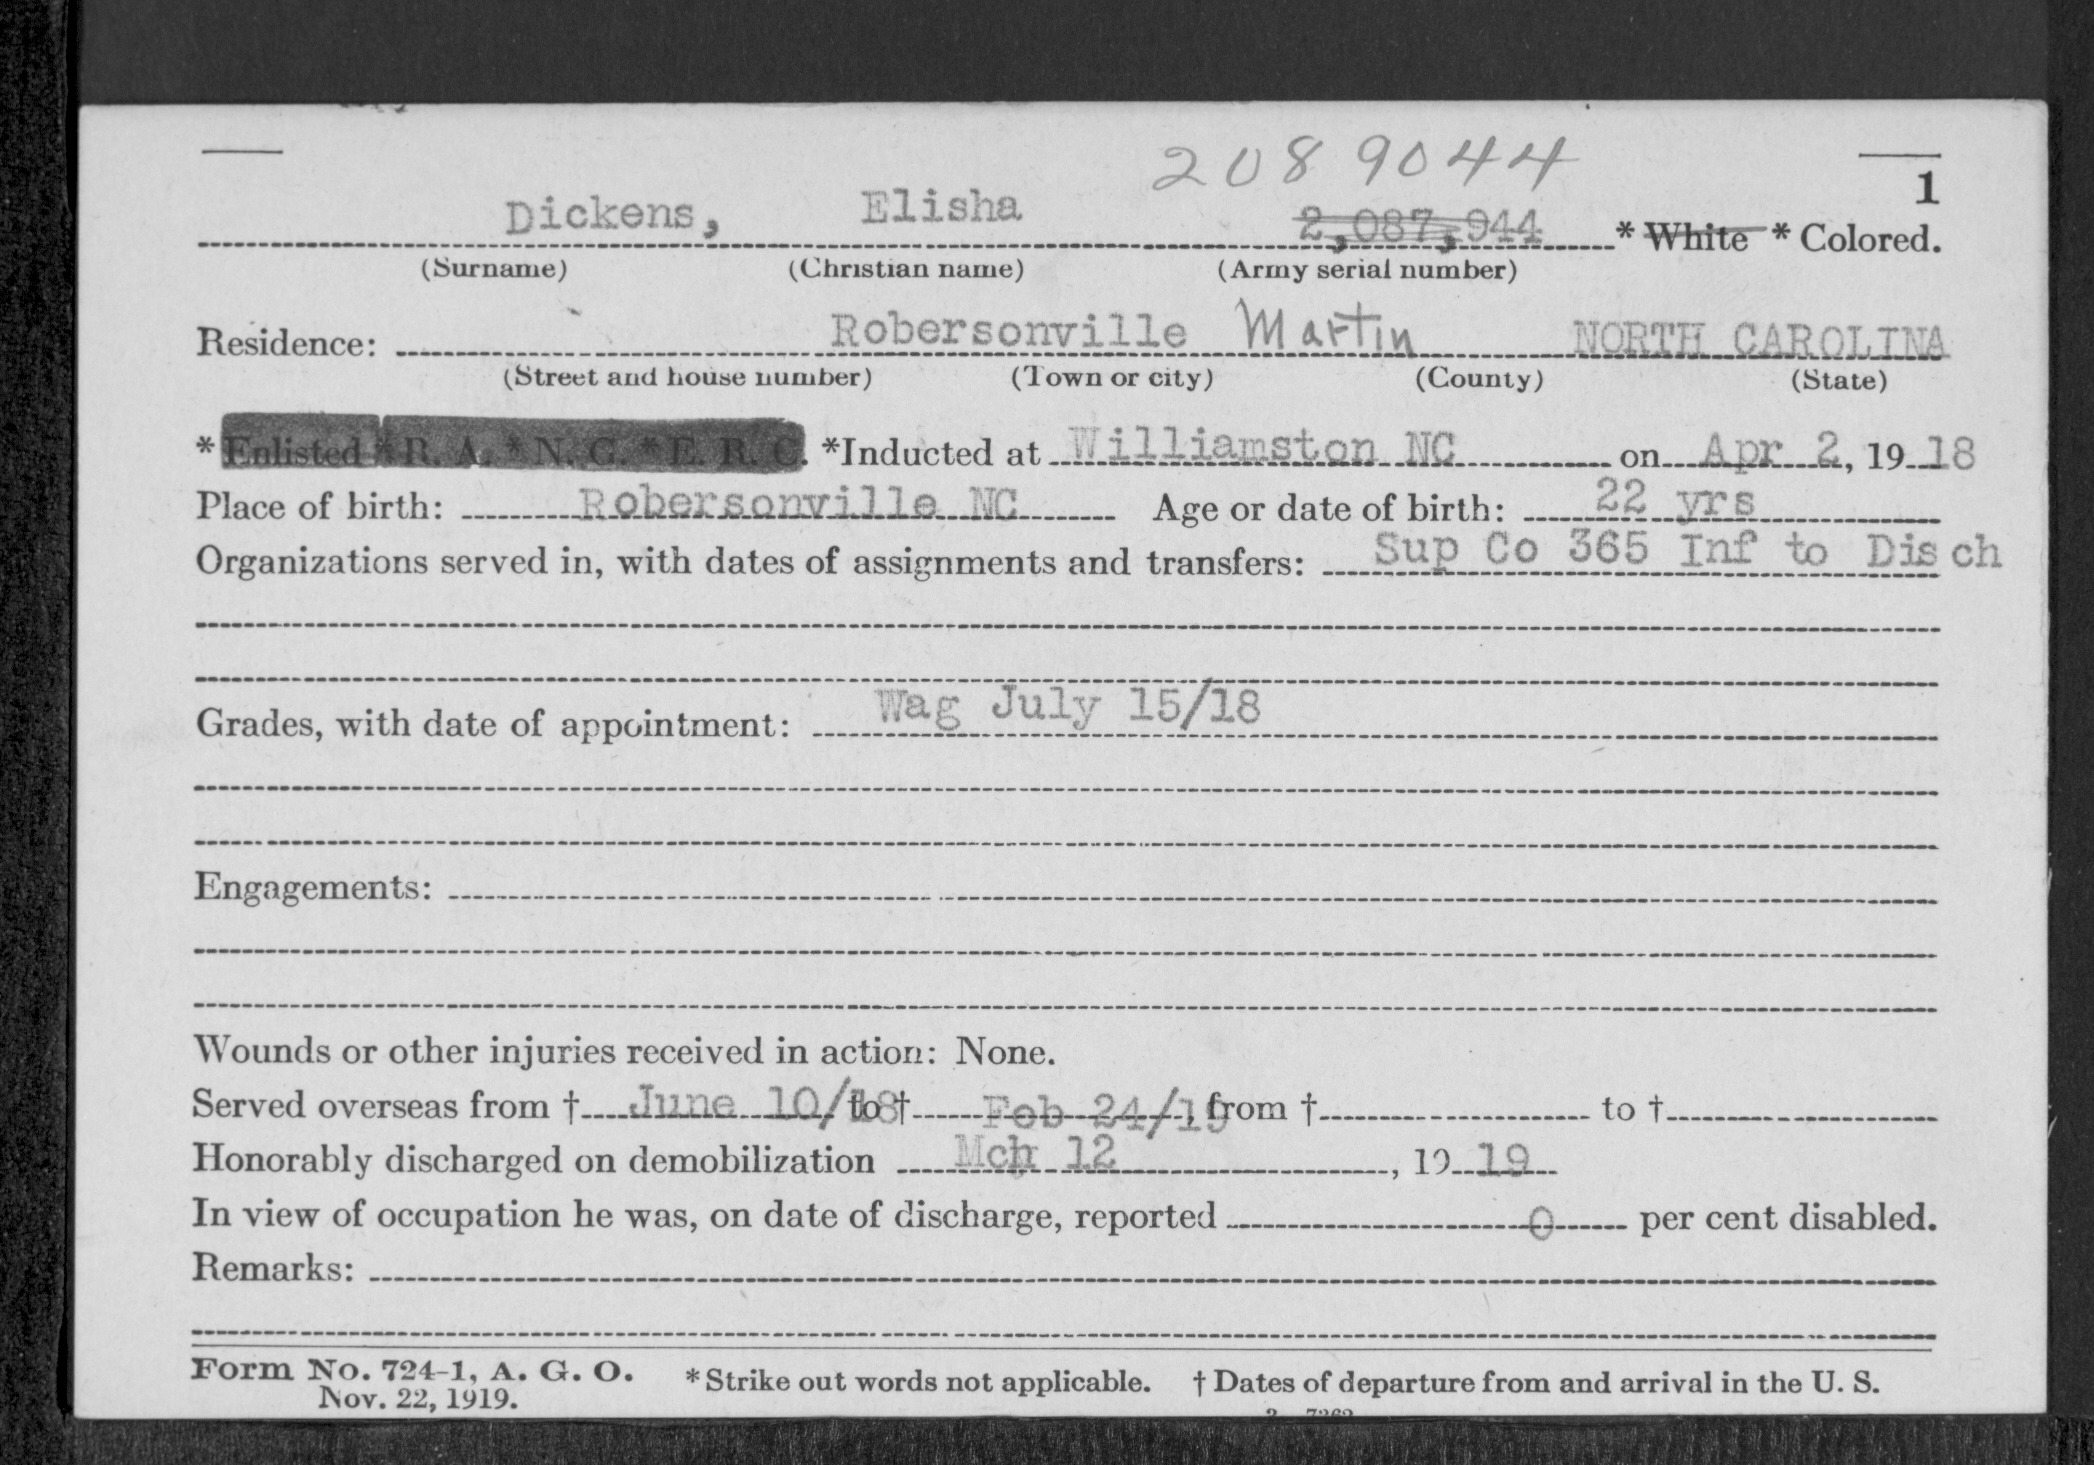 2089044
1
Dickens, Elisha 2,087,944 * White * Colored.
(Surname) (Christian name) (Army serial number)
Residence: Robersonville Martin NORTH CAROLINA
(Street and house number) (Town or city) (County) (State)
* Enlisted * R. A. * N. G. * E. R. C. *Inducted at Williamston NC on Apr 2, 19 18
Place of birth: Robersonville NC Age or date of birth: 22 yrs
Organizations served in, with dates of assignments and transfers: Sup Co 365 Inf to Disch
Grades, with date of appointment: Wag July 15/18
Engagements:
Wounds or other injuries received in action: None.
Served overseas from † June 10/18 to † Feb 24/19, from † to †
Honorably discharged on demobilization Mch 12, 19 19
In view of occupation he was, on date of discharge, reported 0 per cent disabled.
Remarks:
Form No. 724-1, A. G. O. * Strike out words not applicable. † Dates of departure from and arrival in the U. S.
Nov. 22, 1919.